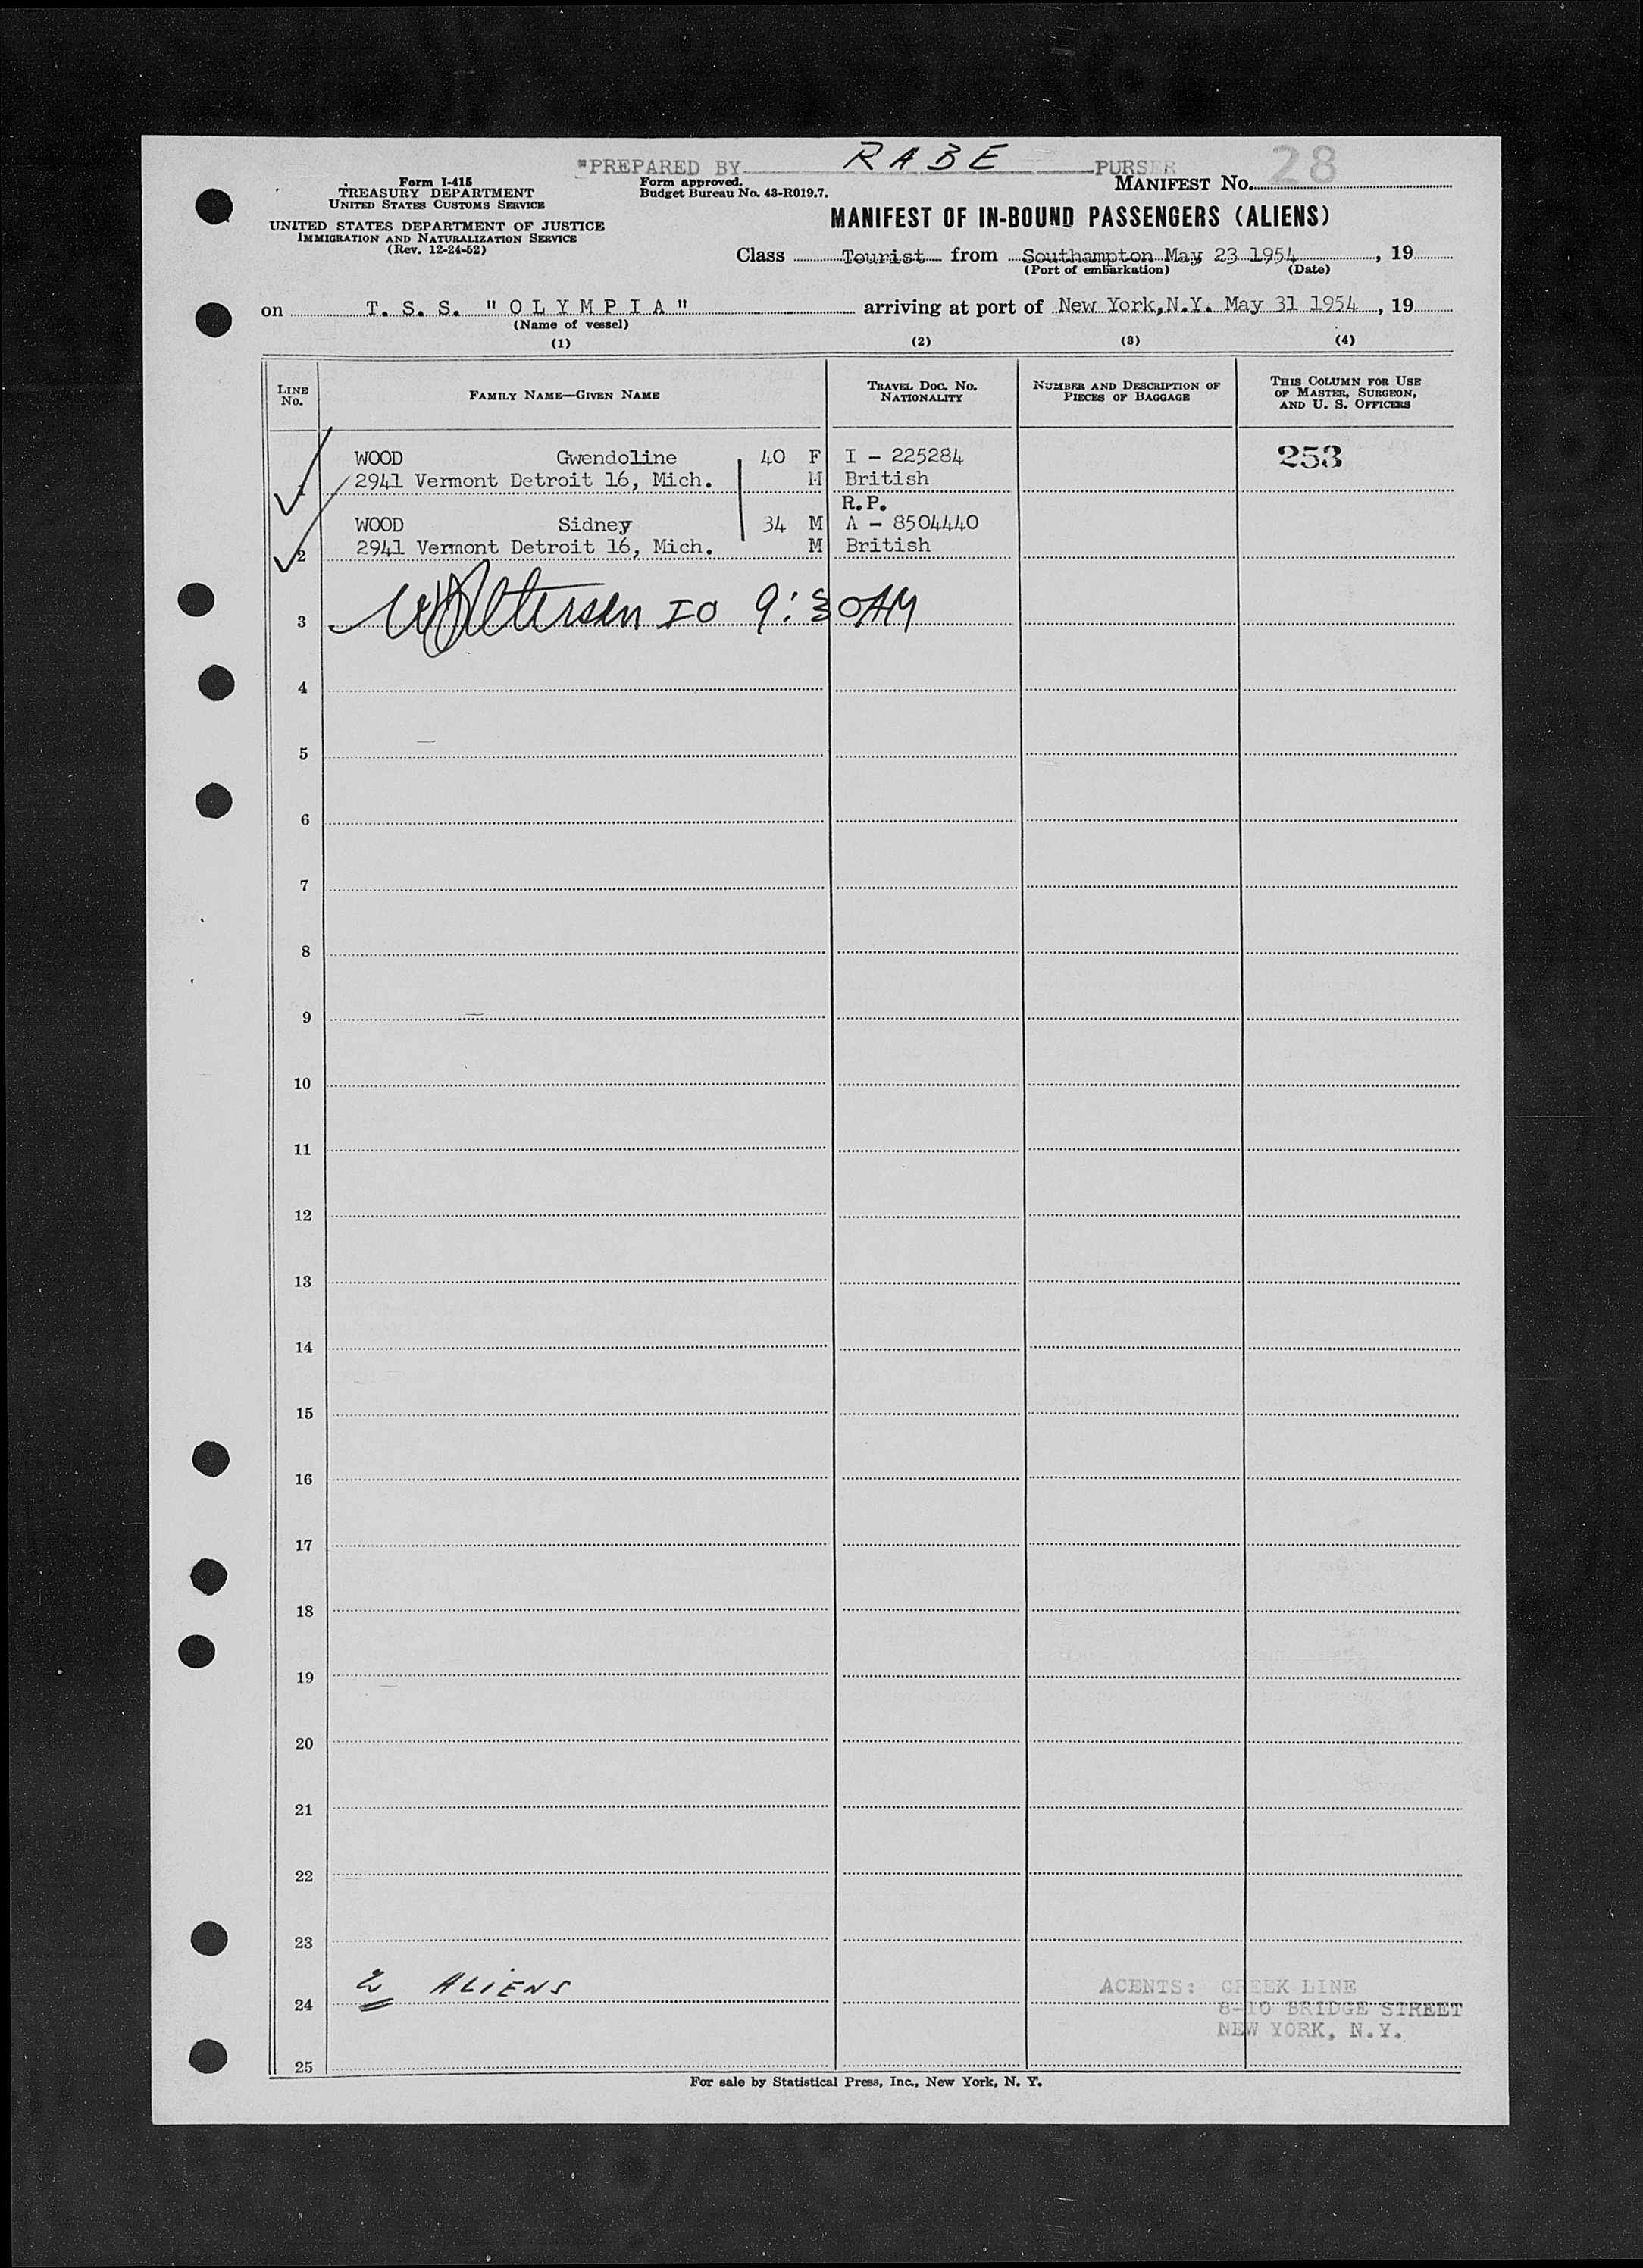 "PREPARED BY RABE PURSER
Form I-415
TREASURY DEPARTMENT
UNITED STATES CUSTOMS SERVICE
UNITED STATES DEPARTMENT OF JUSTICE
IMMIGRATION AND NATURALIZATION SERVICE
(Rev. 12-24-52)
Form approved.
Budget Bureau No. 43-R019.7.
MANIFEST No. 28
MANIFEST OF IN-BOUND PASSENGERS (ALIENS)
Class Tourist from Southampton May 23 1954, 19
(Port of embarkation) (Date)
on T. S. S. "OLYMPIA" arriving at port of New York, N.Y. May 31 1954, 19
(Name of vessel)
(1) (2) (3) (4)
LINE No.
FAMILY NAME—GIVEN NAME
TRAVEL DOC. NO. NATIONALITY
NUMBER AND DESCRIPTION OF PIECES OF BAGGAGE
THIS COLUMN FOR USE OF MASTER, SURGEON, AND U. S. OFFICERS
WOOD Gwendoline 40 F I - 225284 253
1 2941 Vermont Detroit 16, Mich. M British
R.P.
WOOD Sidney 34 M A - 8504440
2 2941 Vermont Detroit 16, Mich. M British
3 IO 9:30AM
4
5
6
7
8
9
10
11
12
13
14
15
16
17
18
19
20
21
22
23
2 ALIENS
24
25
AGENTS: GREEK LINE
8-10 BRIDGE STREET
NEW YORK, N.Y.
For sale by Statistical Press, Inc., New York, N. Y.